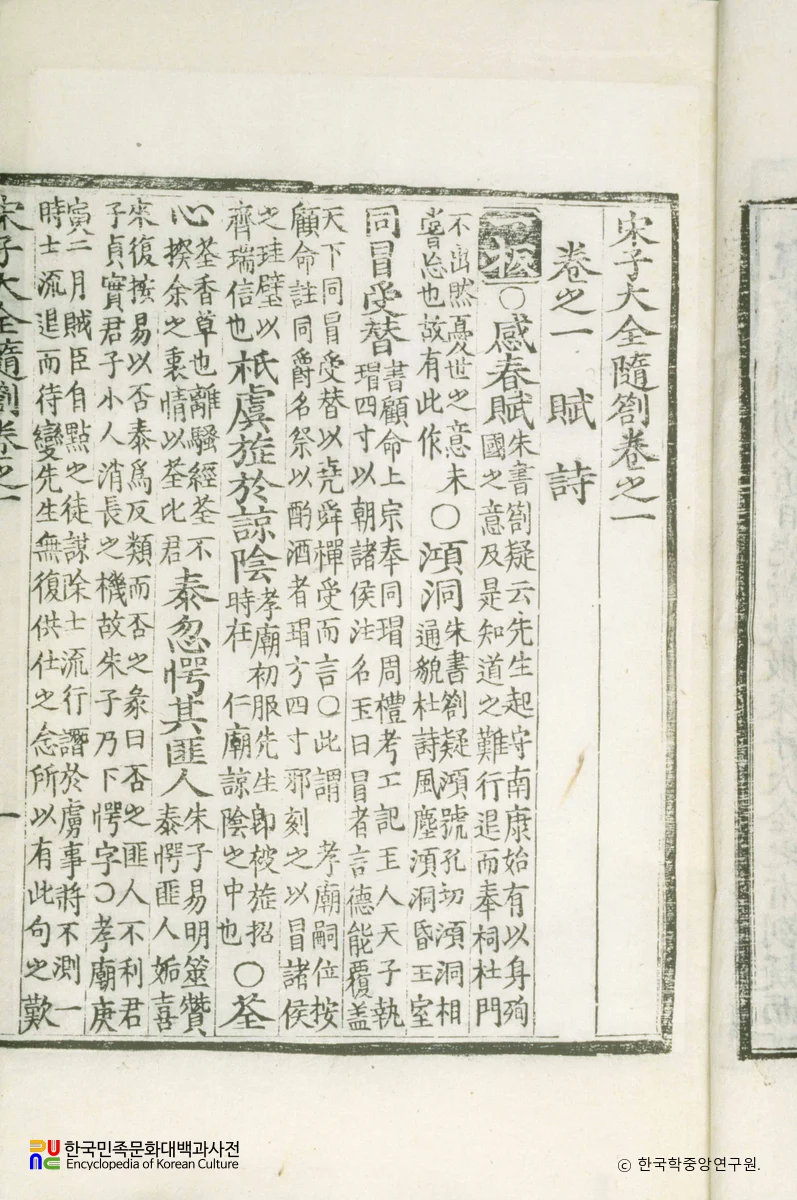 宋子大全隨箚卷之一
卷之一 賦 詩
一板 ○感春賦 朱書箚疑云先生起守南康始有以身殉
國之意及是知道之難行退而奉祠杜門
不出然憂世之意未
嘗忘也故有此作 ○澒洞 朱書箚疑澒號孔切澒洞相
通貌杜詩風塵澒洞昏王室
同冒受替 書顧命上宗奉同瑁周禮考工記玉人天子執
瑁四寸以朝諸侯注名玉曰冒者言德能覆盖
天下同冒受替以堯舜禪受而言○此謂 孝廟嗣位按
顧命註同爵名祭以酌酒者瑁方四寸邪刻之以冒諸侯
之珪璧以
齊瑞信也 秖虞旌於諒陰 孝廟初服先生卽被旌招
時在 仁廟諒陰之中也 ○荃
心 荃香草也離騷經荃不
揆余之衷情以荃比君 泰忽愕其匪人 朱子易明筮贊
泰愕匪人姤喜
來復按易以否泰爲反類而否之彖曰否之匪人不利君
子貞實君子小人消長之機故朱子乃下愕字○孝廟庚
寅二月賊臣自點之徒謀除士流行譖於虜事將不測一
時士流退而待變先生無復供仕之念所以有此句之歎
宋子大全隨箚卷之一 一
한국민족문화대백과사전
Encyclopedia of Korean Culture
ⓒ 한국학중앙연구원.